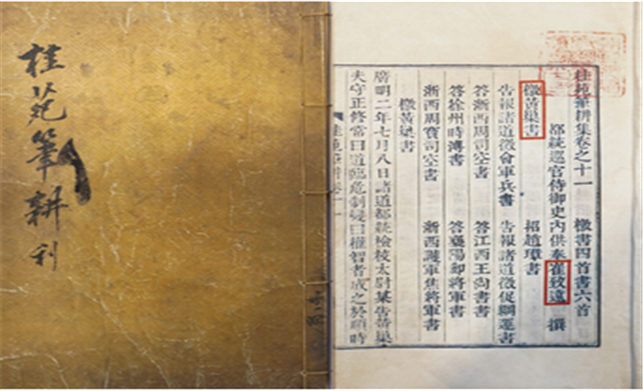 桂苑筆耕 利
桂苑筆耕集卷之十一 檄書四首書六首
都統巡官侍御史內供奉崔致遠 撰
檄黃巢書 招趙璋書
告報諸道徵會軍兵書 告報諸道徵促綱運書
答浙西周司空書 答江西王尚書書
答徐州時溥書 答襄陽郄將軍書
浙西周寶司空書 浙西護軍焦將軍書
檄黃巢書
廣明二年七月八日諸道都統檢校太尉某告黃巢
夫守正修常曰道臨危制變曰權智者成之於順時